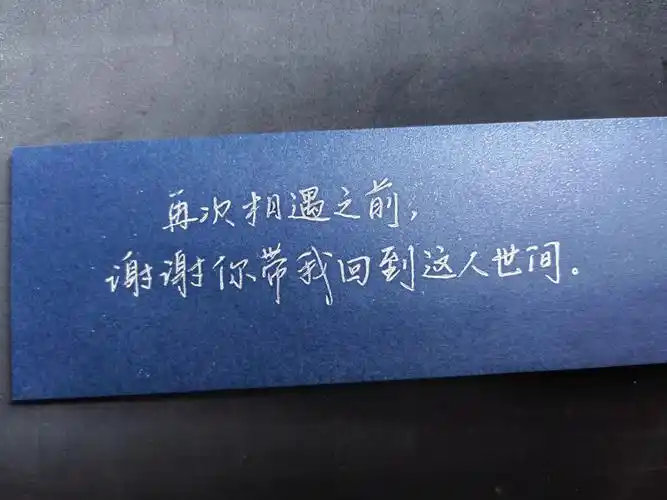 再次相遇之前,
谢谢你带我回到这人世间。